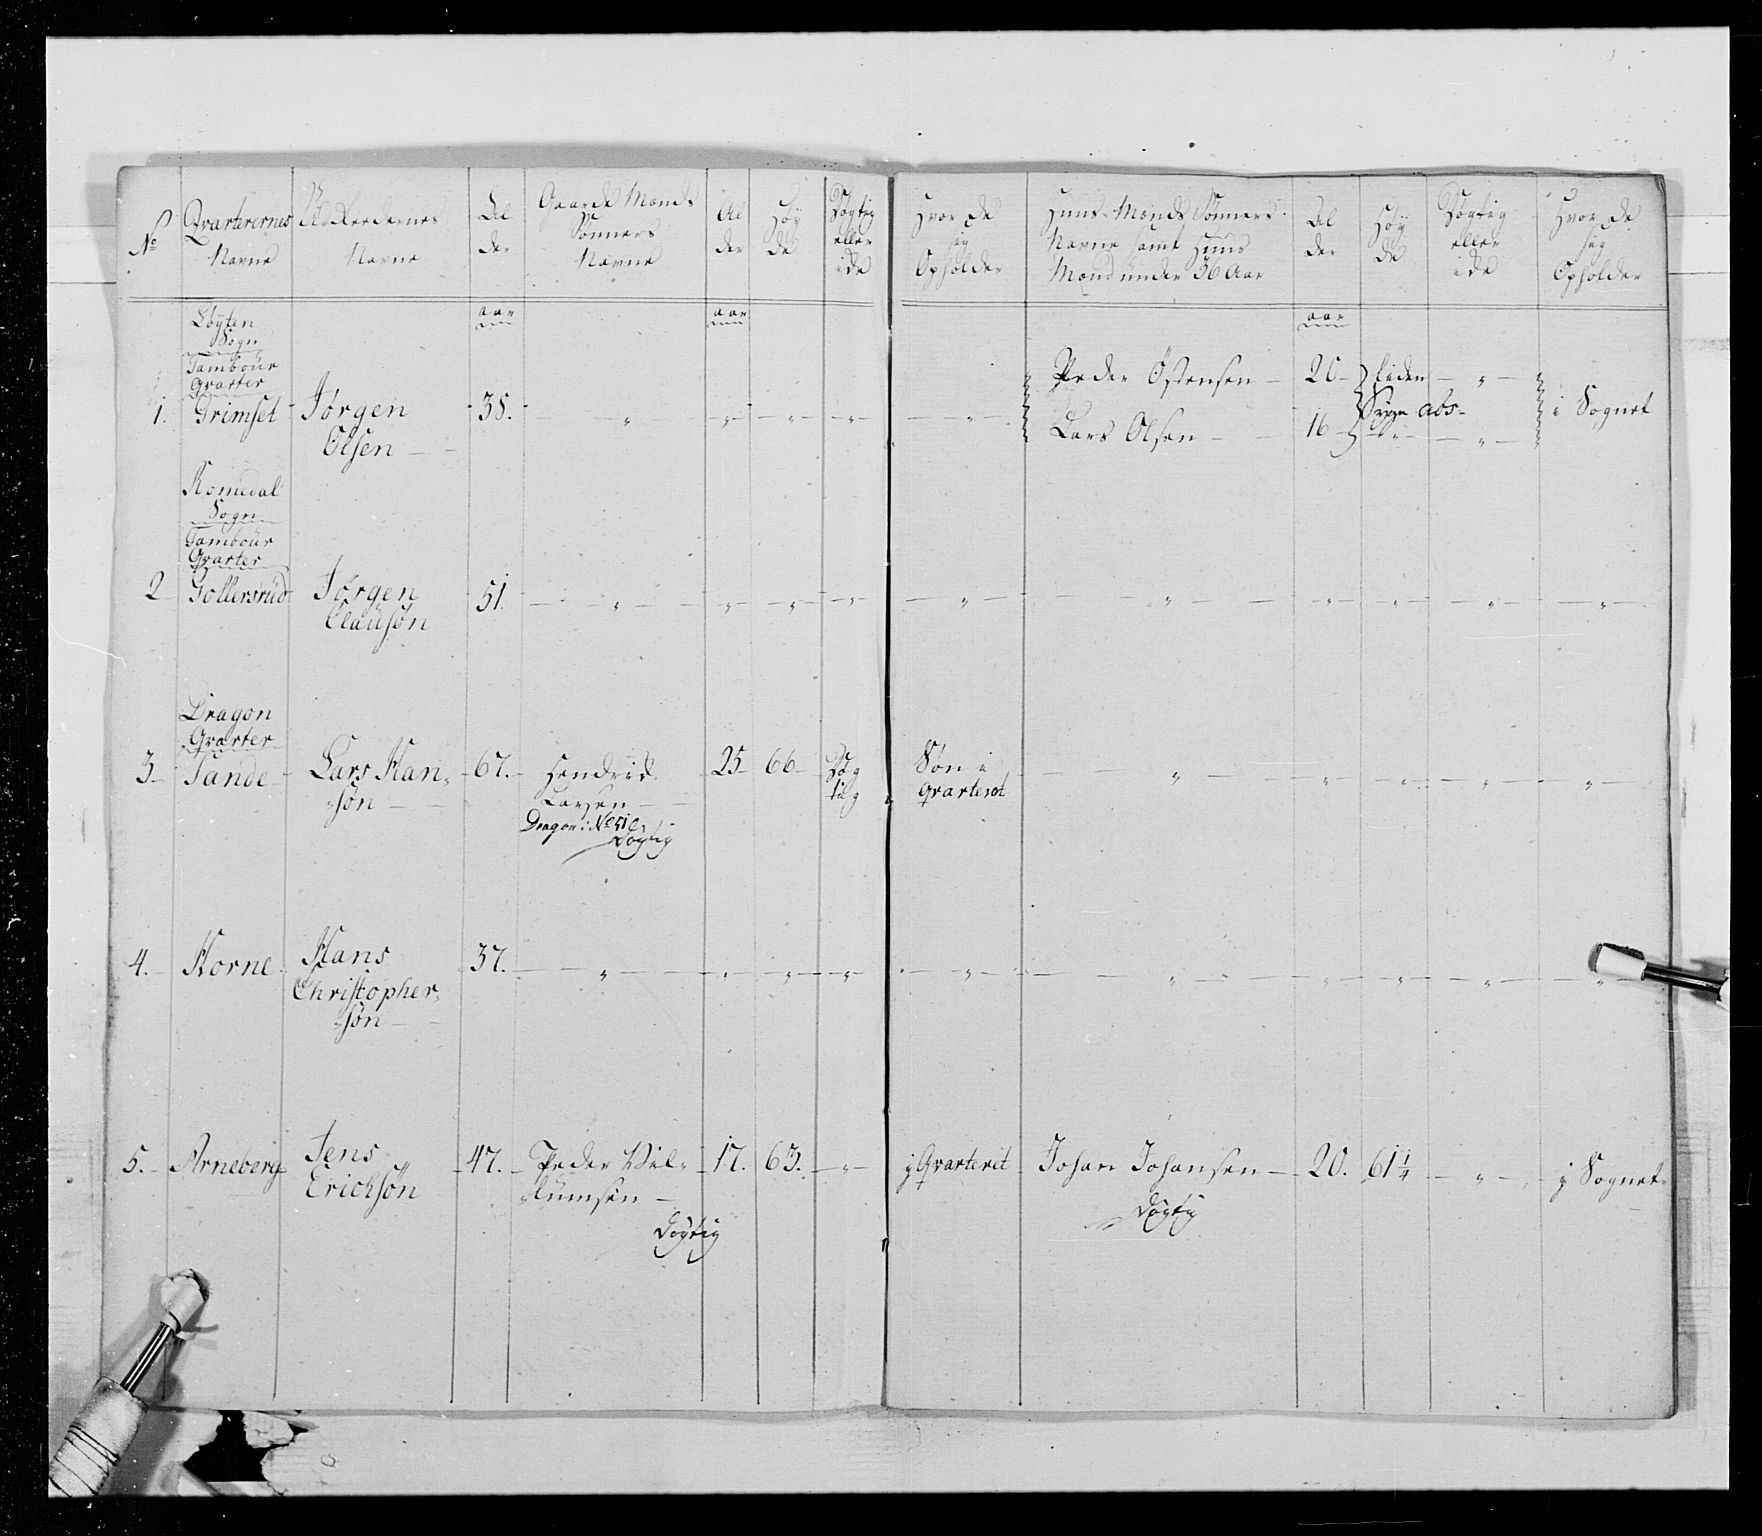 No
Qvarterernes
Navne
Navne
Al
der
Gaarde Mænds
Sönners
Navne
Al
der
Høy
de
Døgtig
eller
ide
Hvor de
sig
Opholder
Huus-Mænds Sönners
Navne samt Huus
Mænd under 36 Aar
Al
der
Høy
de
Døgtig
eller
ide
Hvor de
sig
Opholder
Löyten
Sogn
aar
aar
aar
Tambour
Qvarter
1. Grimset Jörgen
Olsen
38.
Peder Östensen 20 liden
Syge abs-
Lars Olsen 16
i Sognet
Romedal
Sogn
Tambour
Qvarter
2 Gollersrud Jørgen
Clausøn
51.
Dragon
Qvarter
3 Sande Lars Han-
søn
67. Hendrich
Larsen
Dragon i No 51
Døgtig
25 66 Døg
tig
Søn i
Qvarteret
4. Horne Hans
Christopher-
søn
37.
5. Arneberg Jens
Ericksøn
47. Peder Vil-
lumsen
Døgtig
17. 63. i Qvarteret Johan Johansen 20. 61 1/4 i Sognet
Døgtig